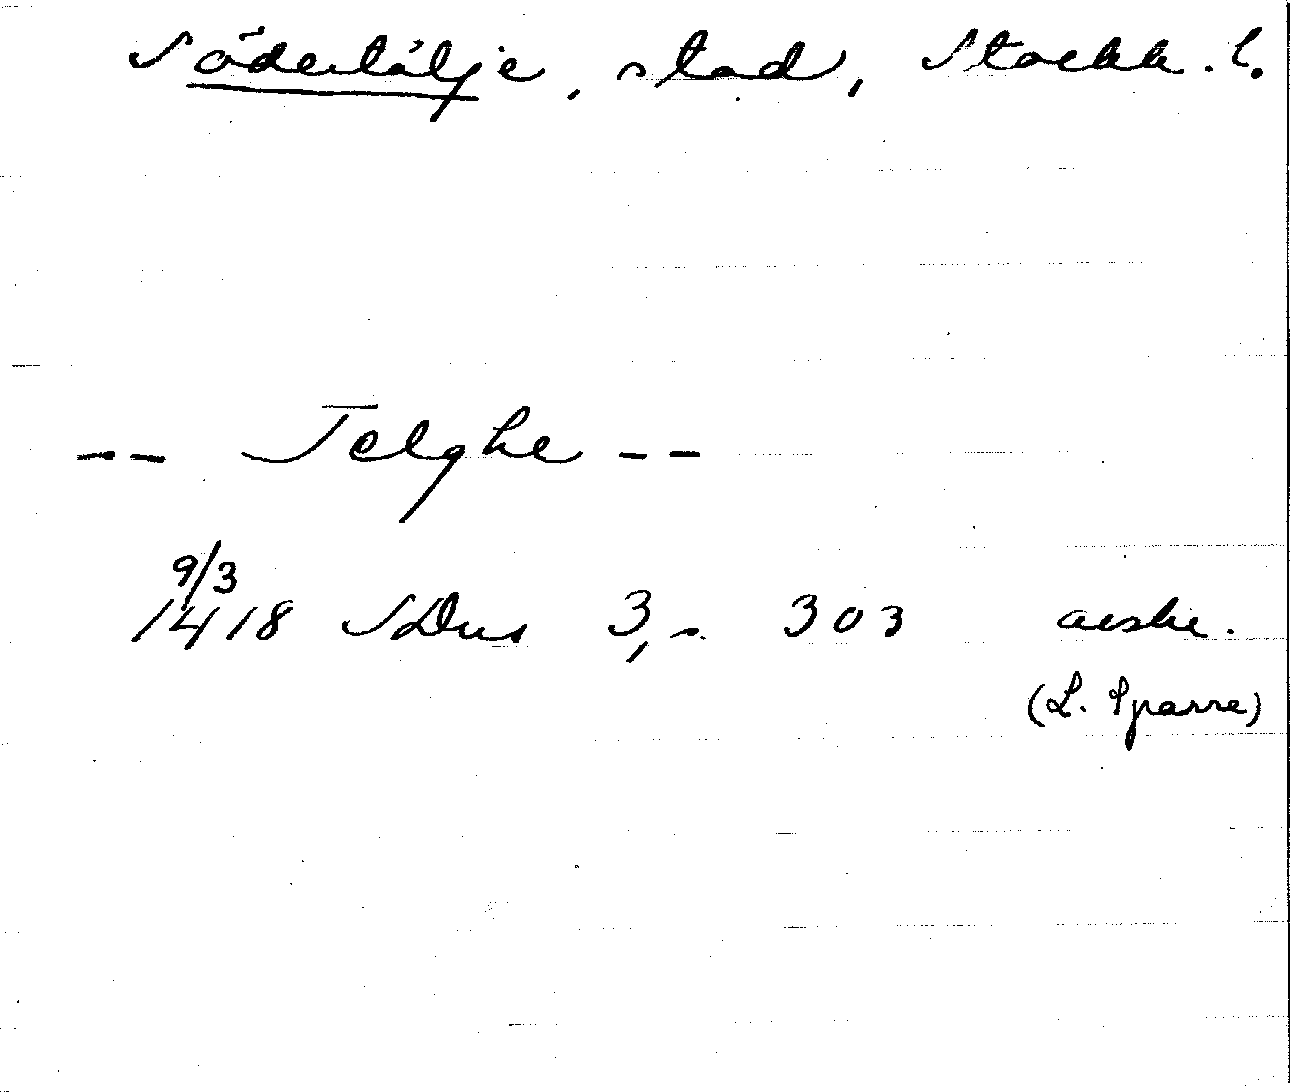 Södertälje, stad, Stockh. l.
-- Telghe --
9/3
1418 SDns 3, s. 303 avskr.
(L. Sparre)